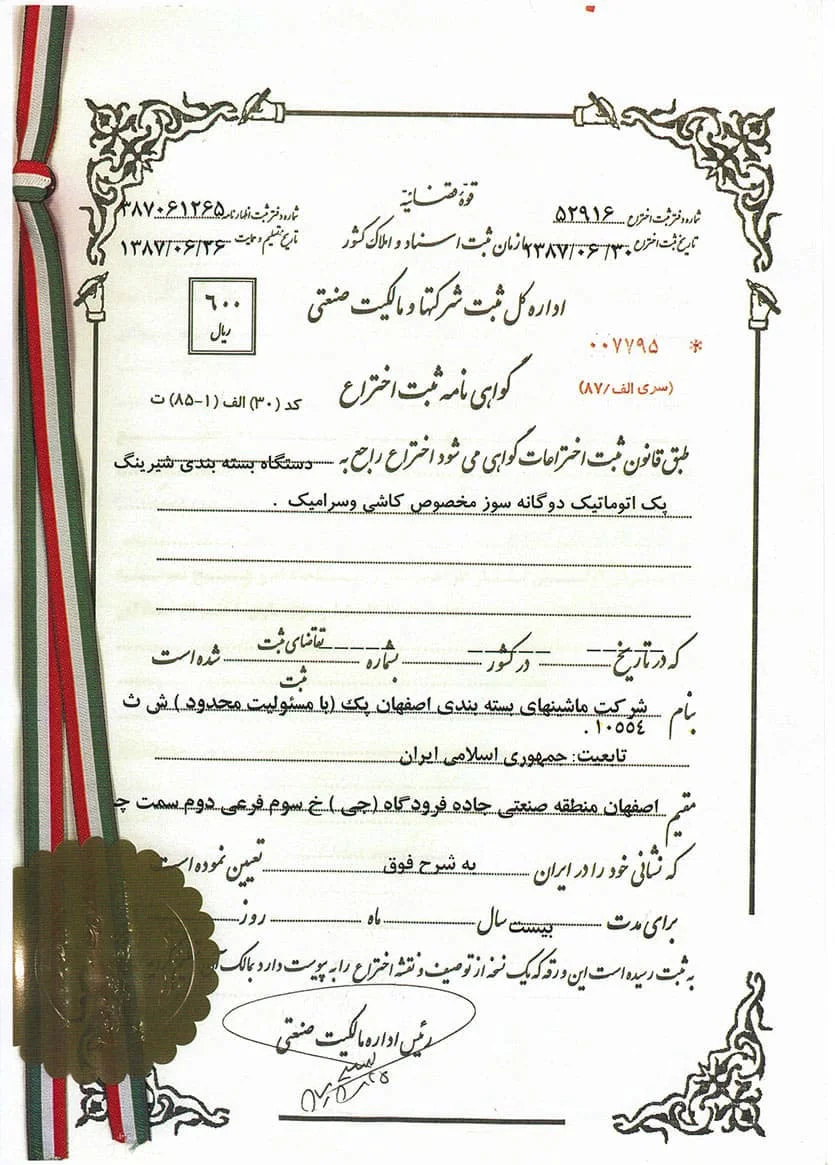 قوهٔ قضائیّه
شماره دفتر ثبت اختراع ۵۲۹۱۶
شماره دفتر ثبت اظهارنامه ۳۸۷۰۶۱۲۶۵
سازمان ثبت اسناد و املاک کشور
تاریخ ثبت اختراع ۱۳۸۷/۰۶/۳۰
تاریخ تسلیم و حمایت ۱۳۸۷/۰۶/۲۶
اداره کل ثبت شرکتها و مالکیت صنعتی
۶۰۰
ریال
* ۰۰۷۷۹۵
(سری الف/۸۷)
گواهی نامه ثبت اختراع
کد (۳۰) الف (۱-۸۵) ت
طبق قانون ثبت اختراعات گواهی می شود اختراع راجع به دستگاه بسته بندی شیرینگ
پک اتوماتیک دوگانه سوز مخصوص کاشی وسرامیک .
که در تاریخ در کشور بشماره تقاضای ثبت شده است
ثبت
بنام شرکت ماشینهای بسته بندی اصفهان پک (با مسئولیت محدود) ش ث
۱۰۵۵٤ .
تابعیت: جمهوری اسلامی ایران
مقیم اصفهان منطقه صنعتی جاده فرودگاه (جی) خ سوم فرعی دوم سمت
که نشانی خود را در ایران به شرح فوق تعیین نموده است
برای مدت بیست سال ماه روز
به ثبت رسیده است این ورقه که یک نسخه از توصیف و نقشه اختراع را به پیوست دارد بمالک
رئیس اداره مالکیت صنعتی